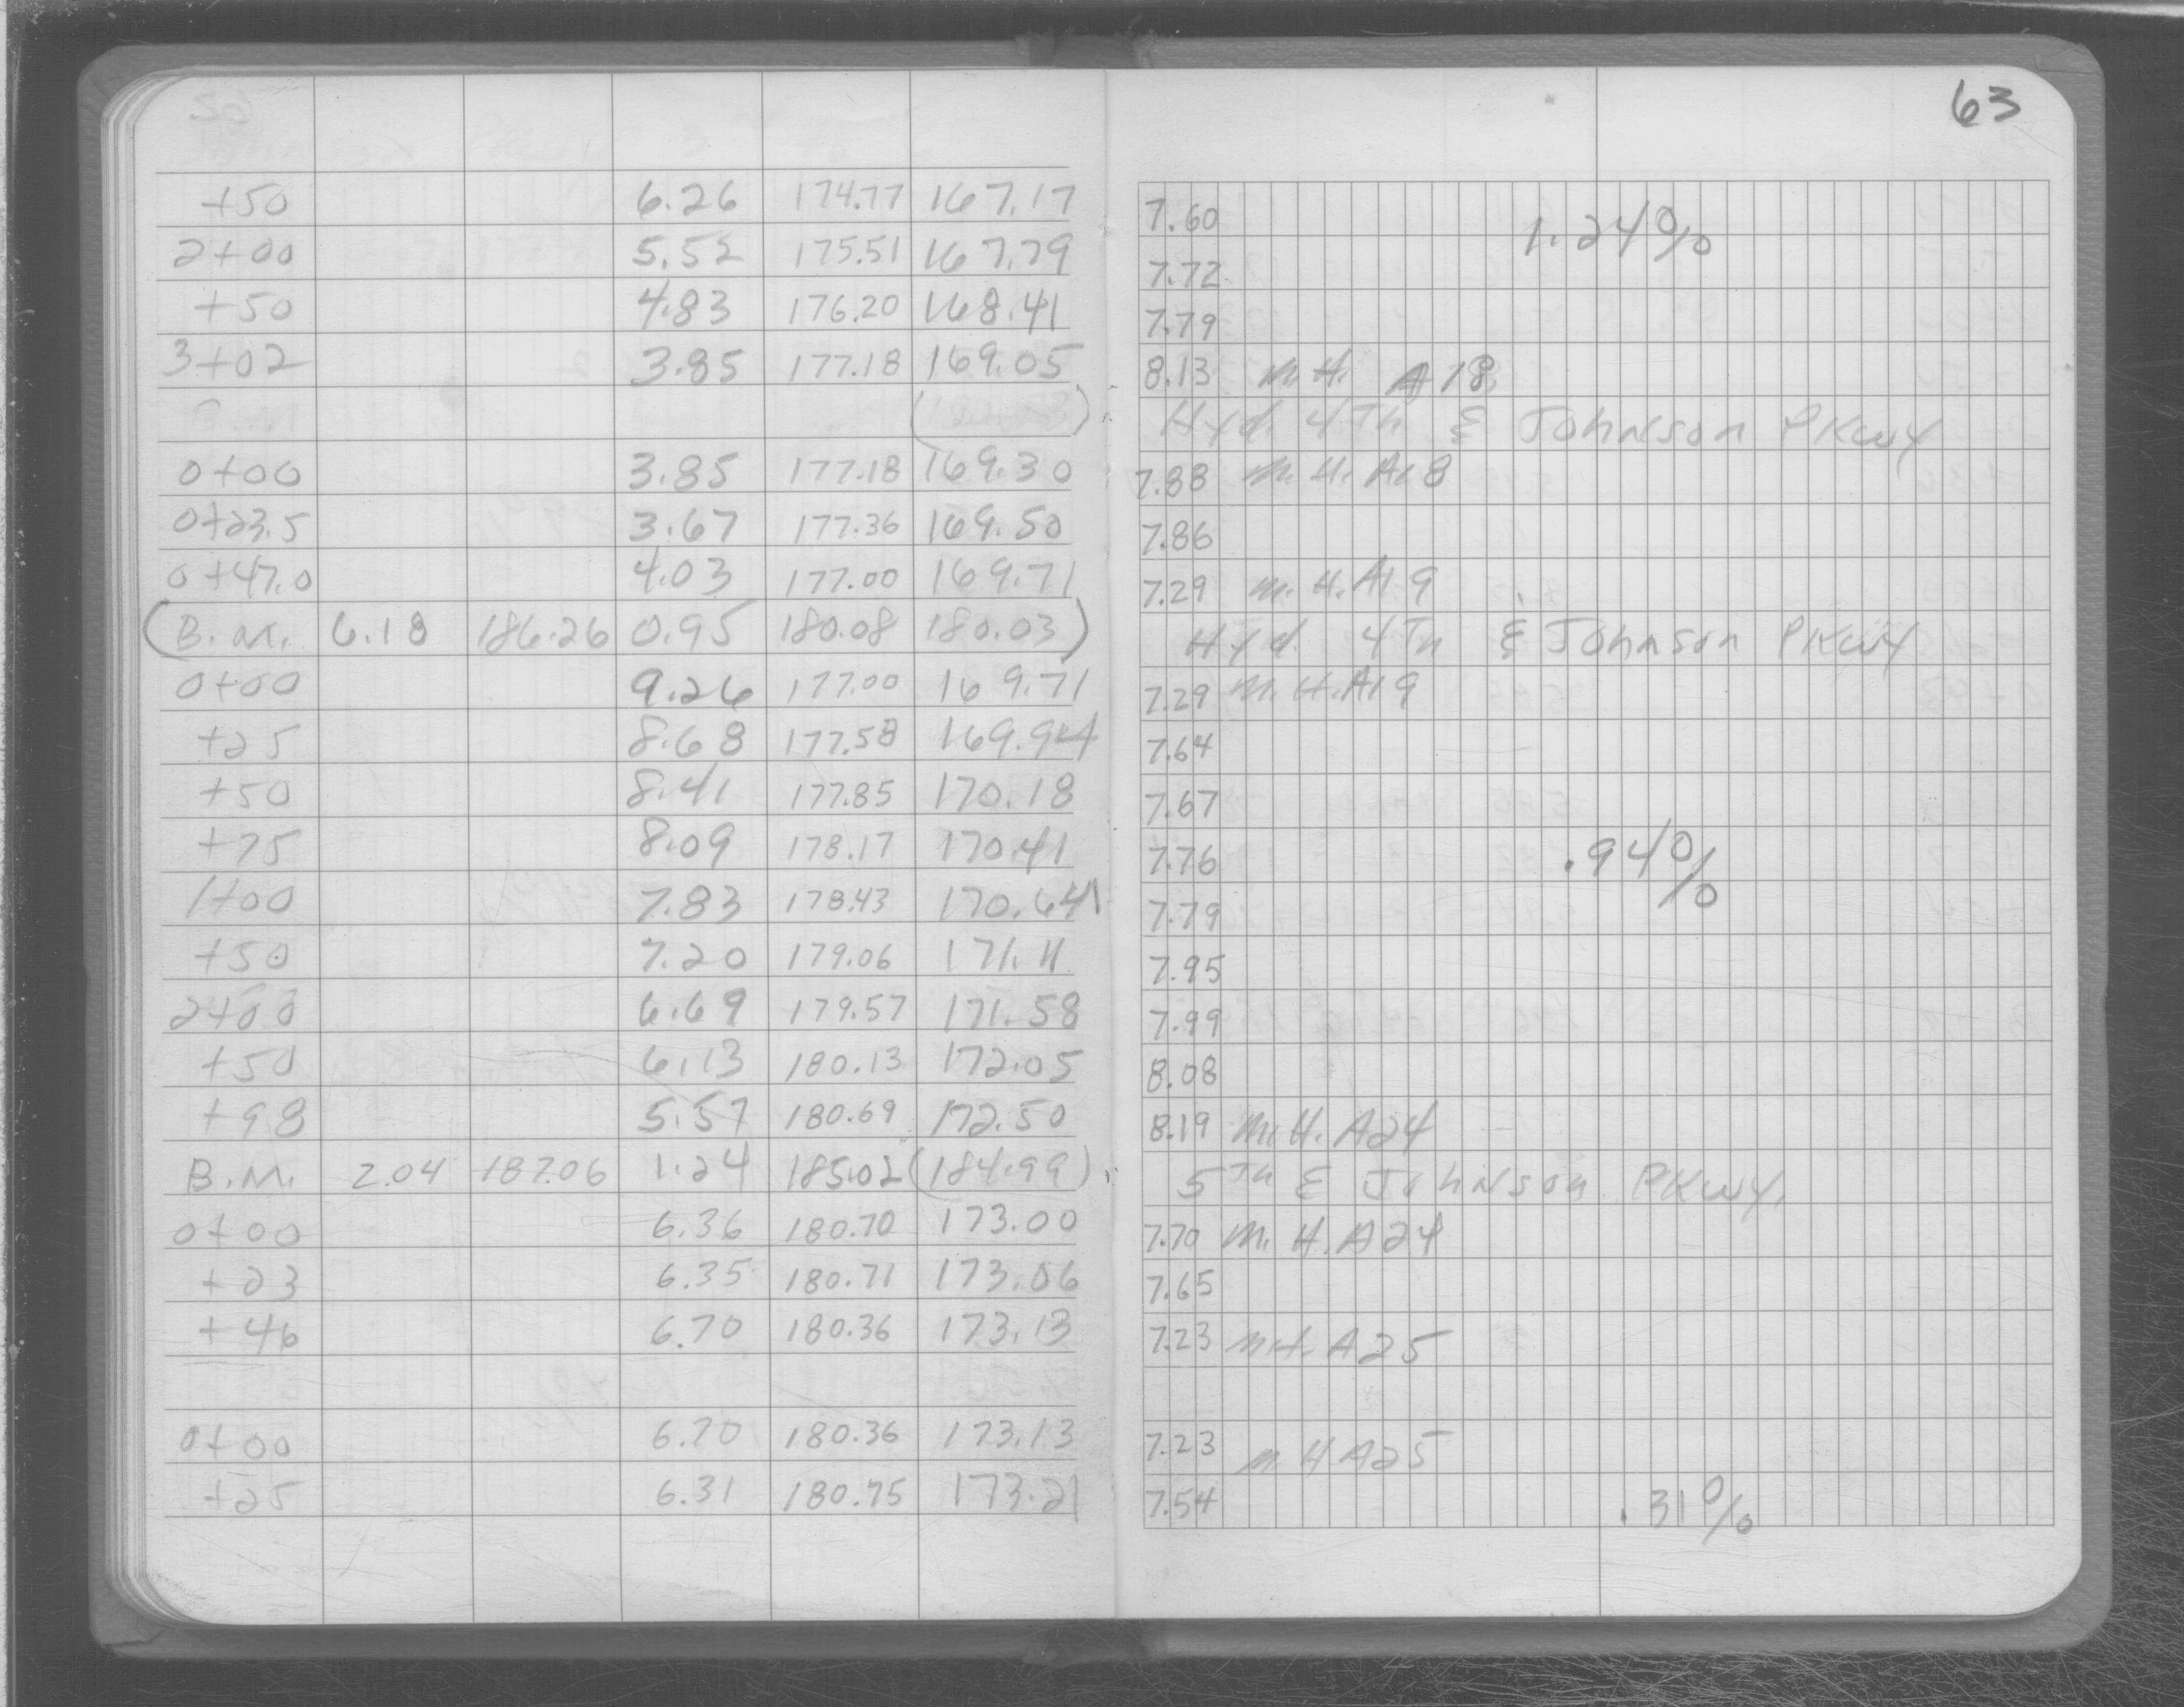 63
+50 6.26 174.77 167.17 7.60 1.24%
2+00 5.52 175.51 167.79 7.72
+50 4.83 176.20 168.41 7.79
3+02 3.85 177.18 169.05 8.13 M.H. A18
B.M. Hyd. 4Th & Johnson PKwy
0+00 3.85 177.18 169.30 7.88 M.H. A18
0+23.5 3.67 177.36 169.50 7.86
0+47.0 4.03 177.00 169.71 7.29 M.H. A19
(B.M. 6.18 186.26 0.95 180.08 180.03) Hyd. 4Th & Johnson PKwy
0+00 9.26 177.00 169.71 7.29 M.H. A19
+25 8.68 177.58 169.94 7.64
+50 8.41 177.85 170.18 7.67
+75 8.09 178.17 170.41 7.76 .94%
1+00 7.83 178.43 170.64 7.79
+50 7.20 179.06 171.11 7.95
2+00 6.69 179.57 171.58 7.99
+50 6.13 180.13 172.05 8.08
+98 5.57 180.69 172.50 8.19 M.H. A24
B.M. 2.04 187.06 1.24 185.02 (184.99) 5Th & Johnson PKwy.
0+00 6.36 180.70 173.00 7.70 M.H. A24
+23 6.35 180.71 173.06 7.65
+46 6.70 180.36 173.13 7.23 M.H. A25
0+00 6.70 180.36 173.13 7.23 M.H A25
+25 6.31 180.75 173.21 7.54 .31%